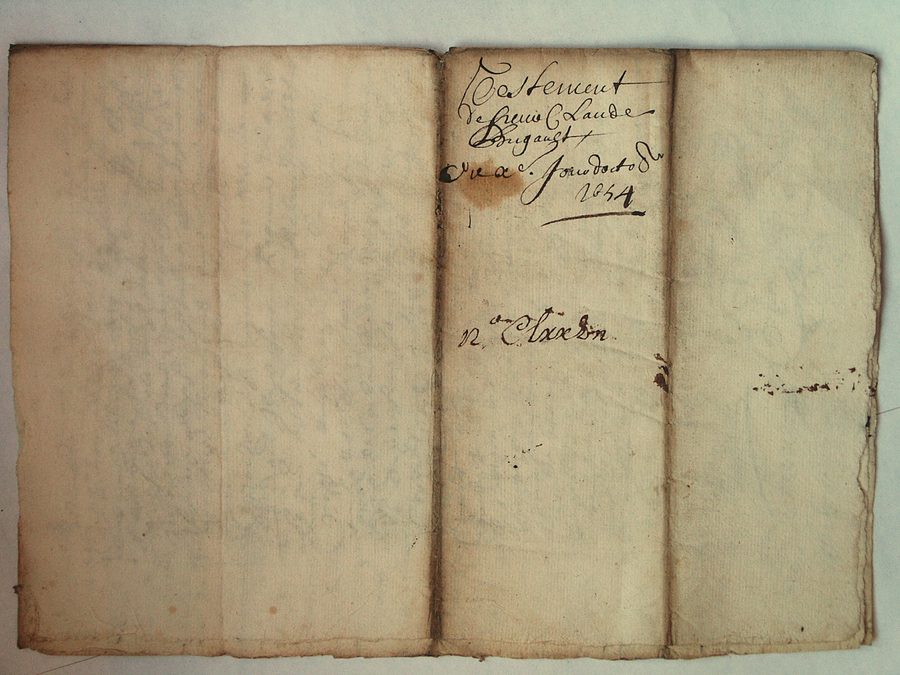 Testement
de sieur Claude
Dugault
Du xe. Jour docto
1654
no. Clxx